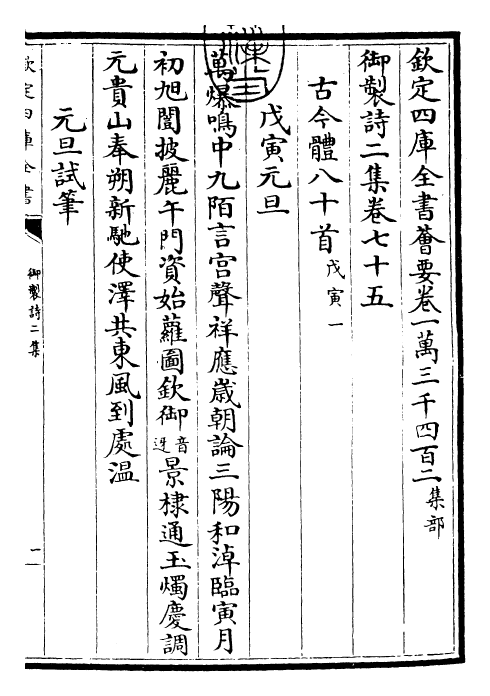 欽定四庫全書薈要卷一萬三千四百二集部
御製詩二集卷七十五
古今體八十首戊寅一
戊寅元旦
萬爆鳴中九陌言宫聲祥應歲朝論三陽和淖臨寅月
初旭闓披麗午門資始蘿圖欽御音迓景棣通玉燭慶調
元貴山奉朔新馳使澤共東風到處温
元旦試筆
欽定四庫全書
御製詩二集
一